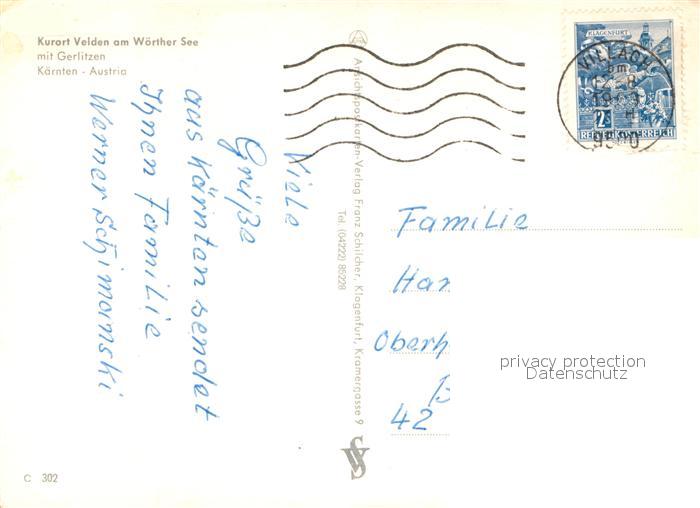 Kurort Velden am Wörther See
mit Gerlitzen
Kärnten - Austria
Viele
Grüße
aus Kärnten sendet
Ihnen Familie
Werner Schimanski
Ansichtspostkarten-Verlag Franz Schilcher, Klagenfurt, Kramergasse 9
Tel. (04222) 85228
KLAGENFURT
2S
REPUBLIK ÖSTERREICH
VILLACH
Familie
Har
Oberh
B
42
privacy protection
Datenschutz
C 302